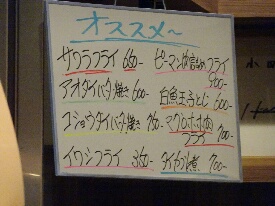 オススメ〜
サワラフライ 650-
アオダイバタ焼き 600-
コショウダイバタ焼き 750-
イワシフライ 350-
ピーマン肉詰めフライ
500-
白魚玉子とじ 600-
マグロホホ肉
フライ 700-
ダイカブト煮 700-
小